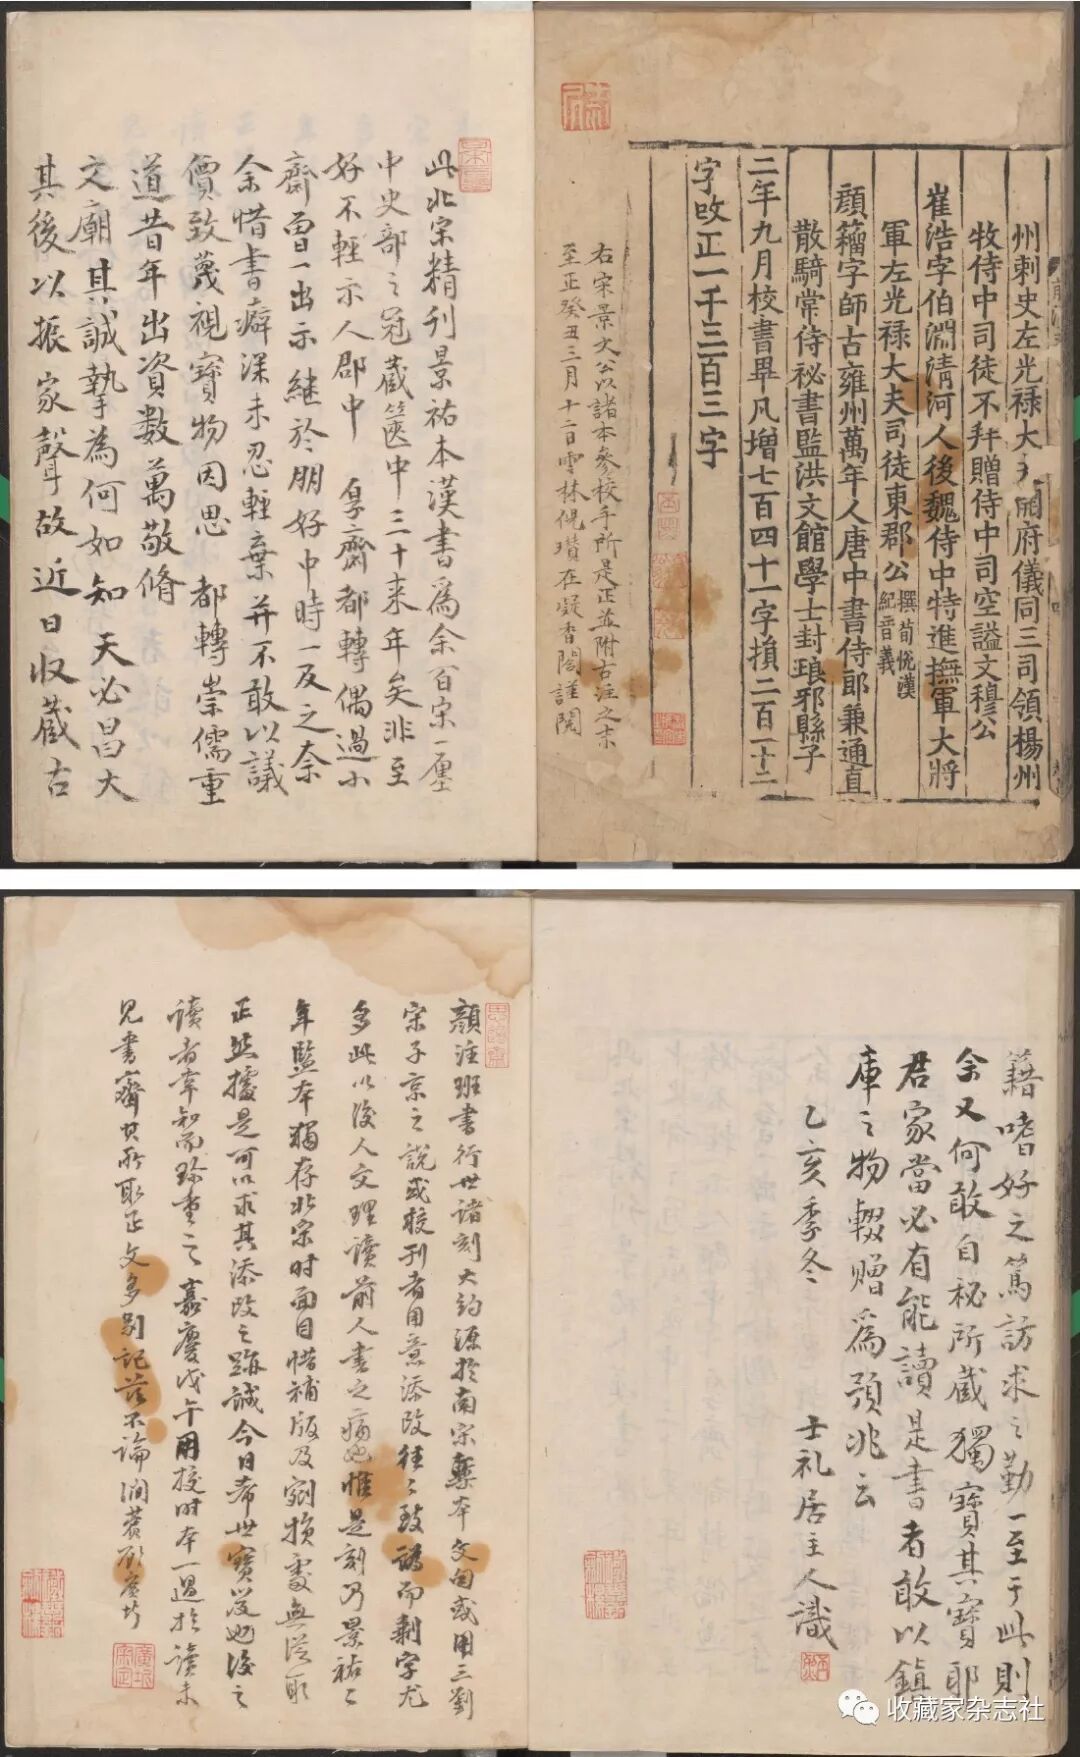 州刺史左光禄大夫開府儀同三司領楊州
牧侍中司徒不拜贈侍中司空謚文穆公
崔浩字伯淵清河人後魏侍中特進撫軍大將
軍左光禄大夫司徒東郡公撰荀恱漢紀音義
顔籀字師古雍州萬年人唐中書侍郎兼通直
散騎常侍秘書監洪文館學士封琅邪縣子
二年九月校書畢凡增七百四十一字損二百一十二
字改正一千三百三字
右宋景文公以諸本參校手所是正並附古注之末
至正癸丑三月十二日雲林倪瓚在凝香閣謹閱
此北宋精刊景祐本漢書爲余百宋一廛
中史部之冠藏篋中三十來年矣非至
好不輕示人郡中 厚齋都轉偶過小
齋曾一出示継於朋好中時一反之奈
余惜書癖深未忍輕棄并不敢以議
價致蔑視寶物因思 都轉崇儒重
道昔年出資数萬敬脩
文廟其誠摯為何如知 天必昌大
其後以振家聲故近日收藏古
籍嗜好之篤訪求之勤一至于此則
余又何敢自秘所藏獨寶其寶耶
君家當必有能讀是書者敢以鎮
庫之物輟贈爲預兆云
乙亥季冬 士礼居主人識
顔注班書行世諸刻大約源於南宋槧本文句或用三劉
宋子京之説或校刊者用意添改往〻致譌而剩字尤
多此以後人文理讀前人書之病也惟是刻乃景祐二
年監本獨存北宋时面目惜補版及剜損處無從取
正然據是可以求其添改之跡誠今日希世寶笈也後之
讀者幸知而珍重之嘉慶戊午用校时本一過於讀未
見書齋其所取正文多别記兹不論澗薲顧廣圻
收藏家杂志社